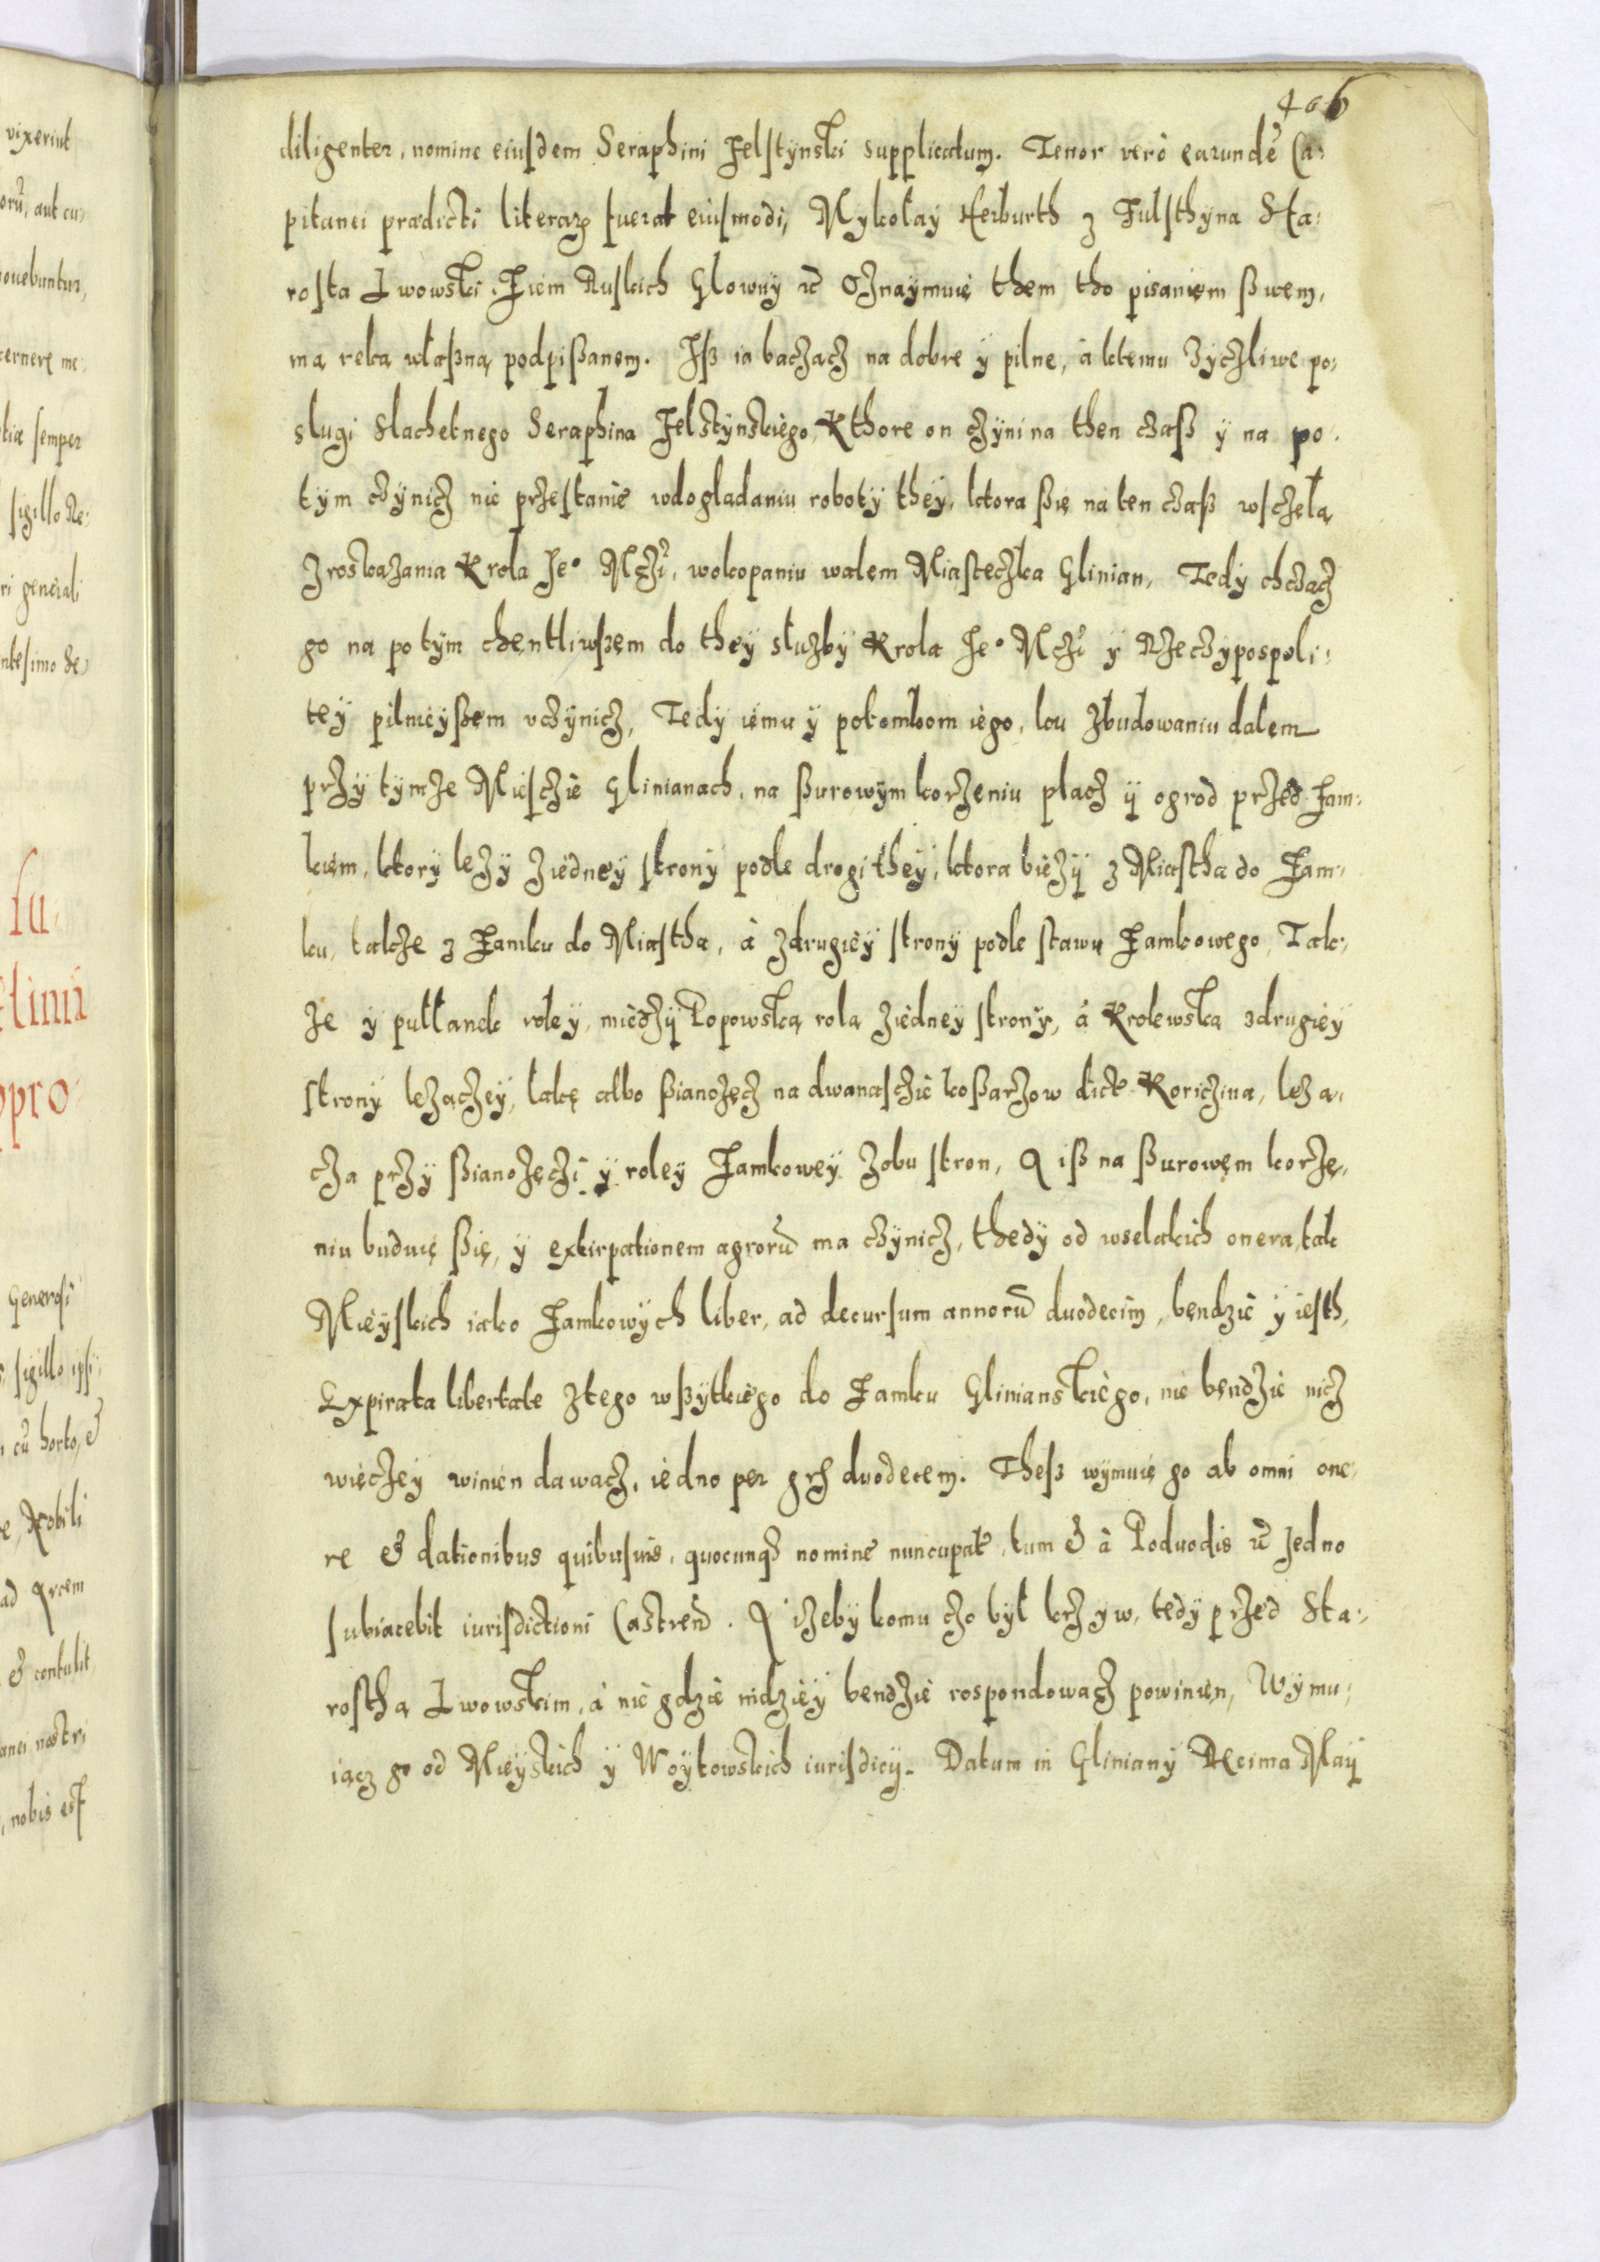 406
diligenter, nomine eiusdem Seraphini Felstynski supplicatum. Tenor verò earundē Ca:
pitanei prædicti literarꝫ fuerat eiusmodi, Mykołay Herburth z Fulsthyna Sta:
rosta Lwowski, Ziem Ruskich Glowny ꝛc̄ Oznaymuię them tho pisaniem ßwem,
mą reką własną podpißanem. Iß ia bacząch na dobre ÿ pilne, à ktemu życzliwe po:
slugi Slachetnego Seraphina Felstynskiego, Kthore on czÿni na then czaß ÿ na po:
tÿm czÿnicz nie przestanie wdogladaniu robotÿ theÿ, ktora ßię na ten czaß wsczęła
Zroskazania Krola Je° Mczi, wokopaniu walem Miasteczka Glinian, Tedÿ chcząch
go na potÿm chentliwßem do theÿ służbÿ Krola Je° Mczi ÿ Rzeczÿpospoli:
teÿ pilnieÿßem vczÿnicz, Tedÿ iemu ÿ potomkom iego, ku zbudowaniu dalem
przÿ tÿmże Miesczie Glinianach, na ßurowÿm korzeniu placz ÿ ogrod przed Zam:
kiem, ktorÿ leżÿ ziedneÿ stronÿ podle drogi theÿ, ktora bieżÿ z Miastha do Zam:
ku, także z Zamku do Miastha, à zdrugieÿ stronÿ podle stawu Zamkowego, Tak:
że ÿ pułłanek roleÿ, miedzÿ Popowską rolą ziedneÿ stronÿ, à Krolewską zdrugieÿ
stronÿ leżączeÿ, łąkę albo ßianożęcz na dwanasczie koßarzow dict. Koriczina, leżą:
cza przÿ ßianożęczi ÿ roleÿ Zamkoweÿ zobu stron, A iß na ßurowem korzę:
niu buduię ßię, ÿ extirpationem agrorū ma czÿnicz, thedÿ od wselakich onera, tak
Mieÿskich iako Zamkowÿch liber, ad decursum annorū duodecim, bendzie ÿ iesth,
Expirata libertate ztego wßÿtkiego do Zamku Glinianskiego, nie bendzie nicz
więczeÿ winien dawacz, iedno per grß duodecem. Theß wÿmuię go ab omni one:
re & dationibus quibusuis, quocunqꝫ nomine nuncupat, tum & à Poduodis ꝛc̄ Jedno
subiacebit iurisdictioni Castren. A iżebÿ komu czo bÿł krzÿw, tedÿ przed Sta:
rosthą Lwowskim, à nie gdzie nidzieÿ bendzie rospondowacz powinien, Wÿmu:
iącz go od Mieÿskich ÿ Woÿtowskich iurisdicÿ. Datum in Glinianÿ Xcima Maÿ